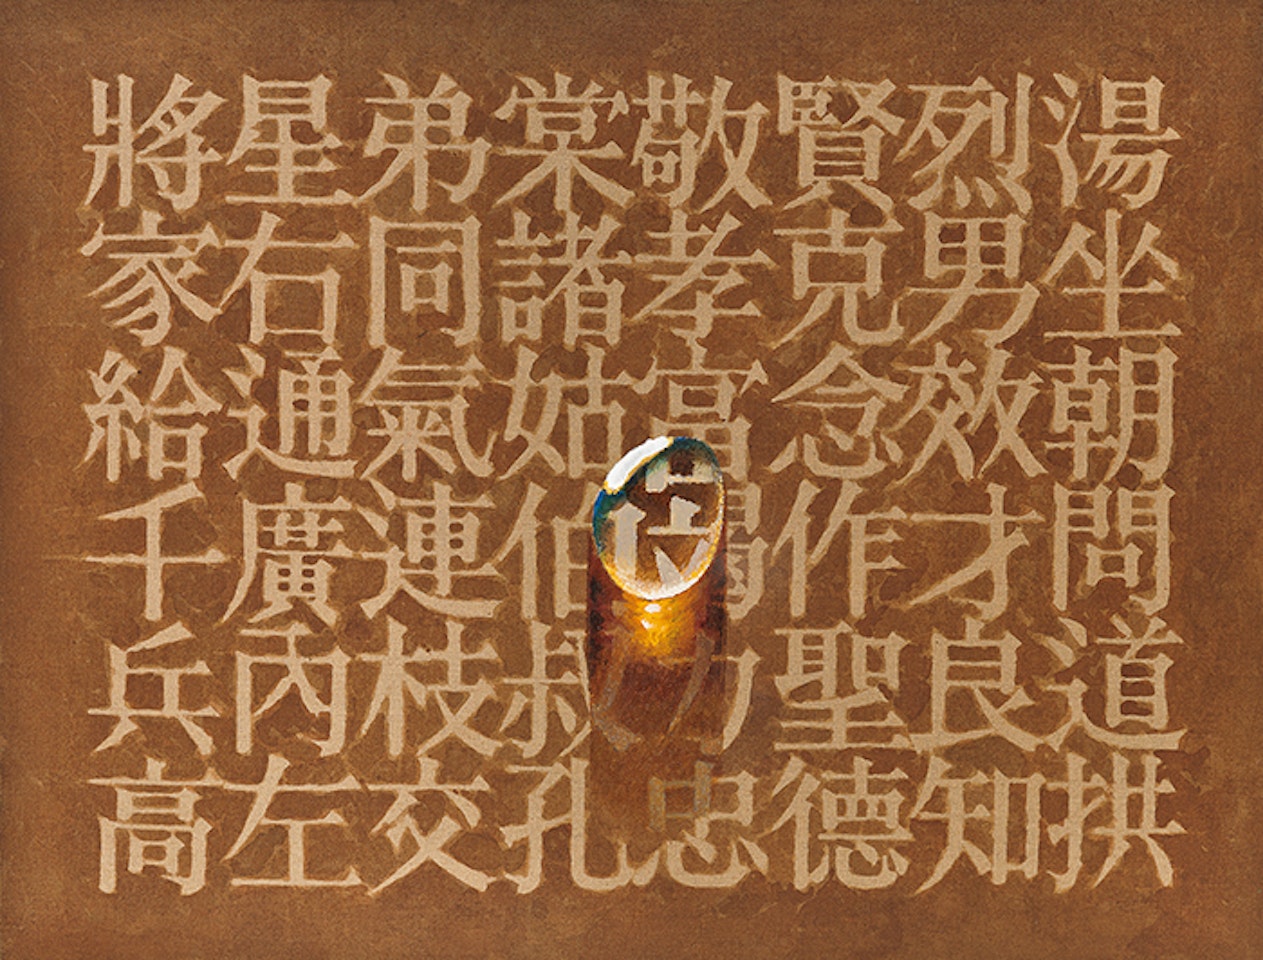 湯坐朝問道拱
烈男效才良知
賢克念作聖德
敬孝當竭力忠
棠諸姑伯叔孔
弟同氣連枝交
星右通廣內左
將家給千兵高